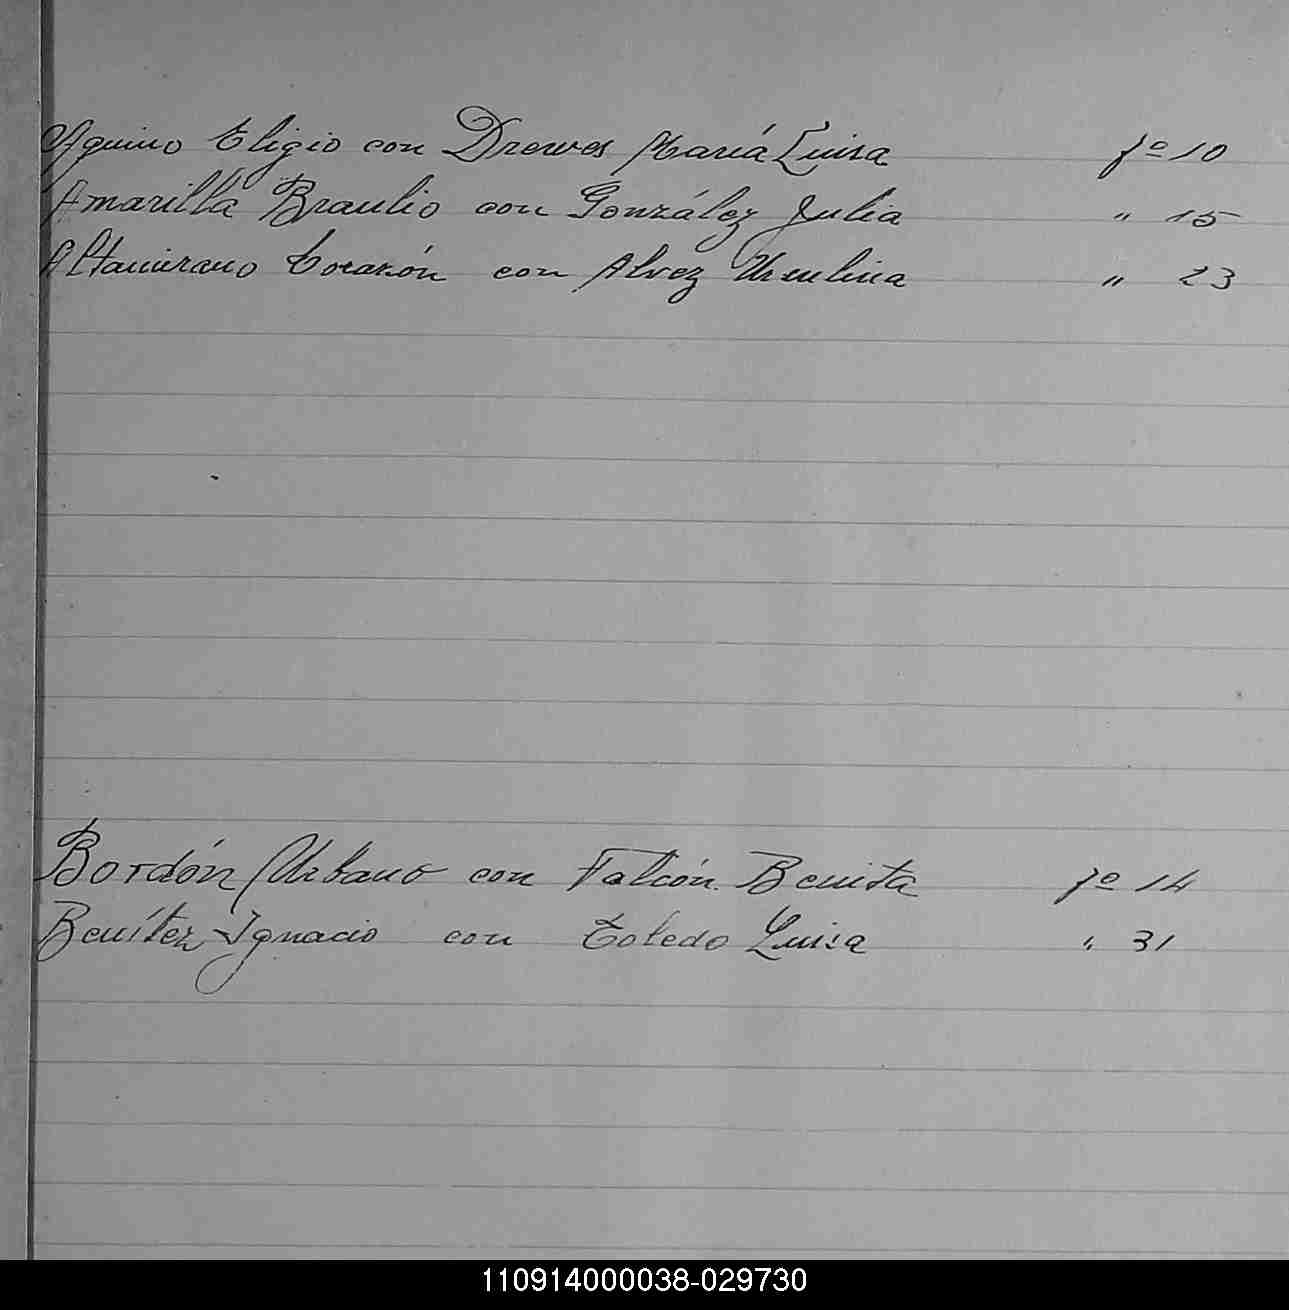 Aquino Eligio con Drewes María Luisa fº 10
Amarilla Braulio con González Julia " 15
Altamirano Corazón con Alvez Ursulina " 23
Bordón Urbano con Falcón Benita fº 14
Benítez Ignacio con Toledo Luisa " 31
110914000038-029730